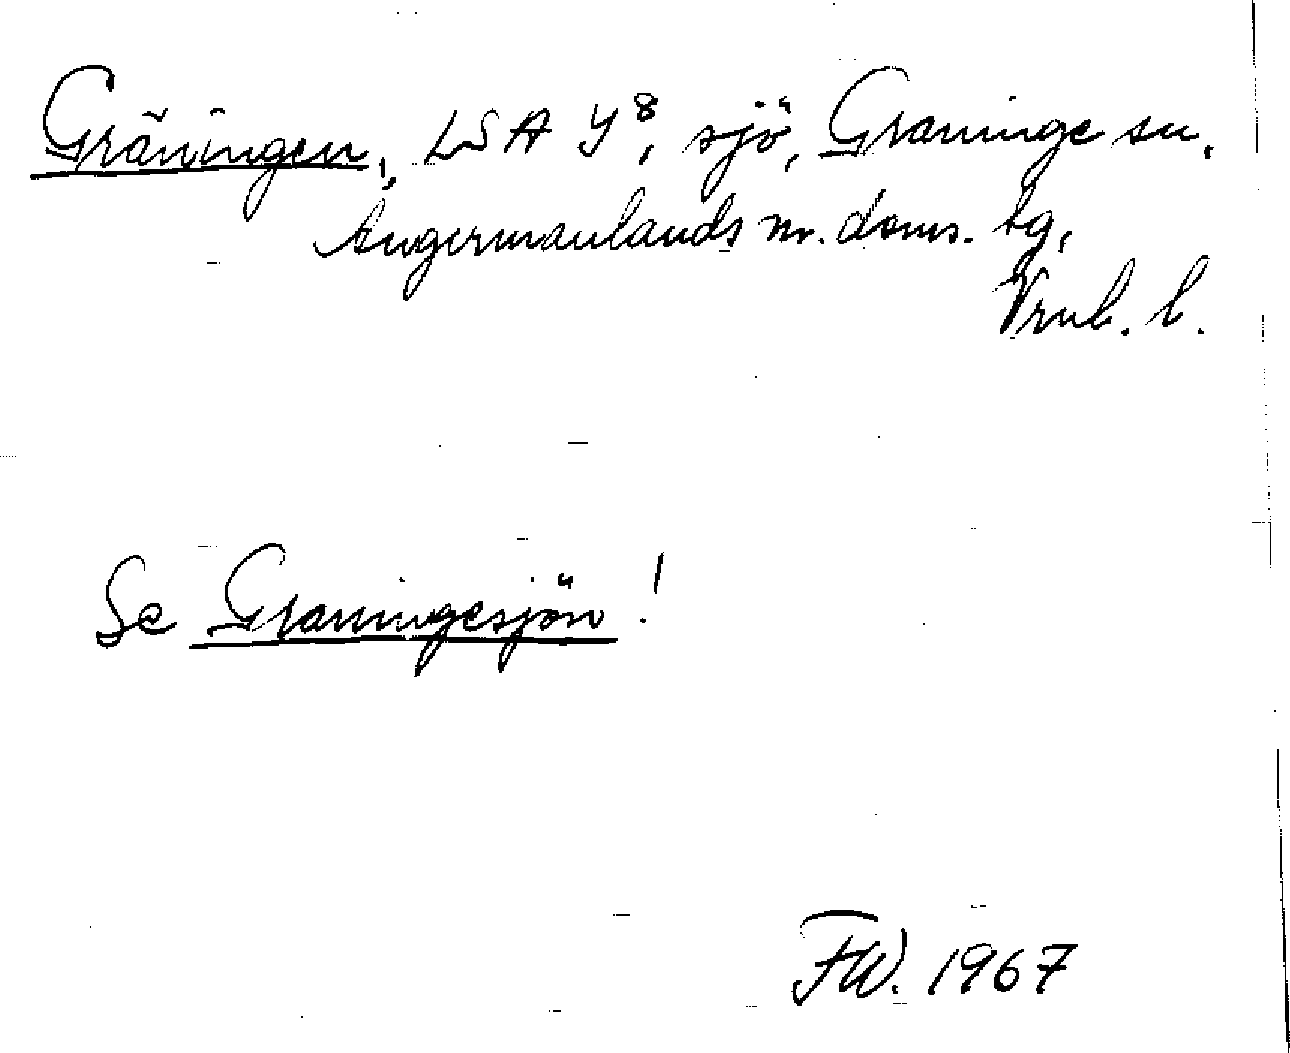 Gräningen, LSA Y⁸, sjö, Graninge sn,
Ångermanlands m. doms. tg,
Vrnl. l.
Se Graningesjön!
FW. 1967